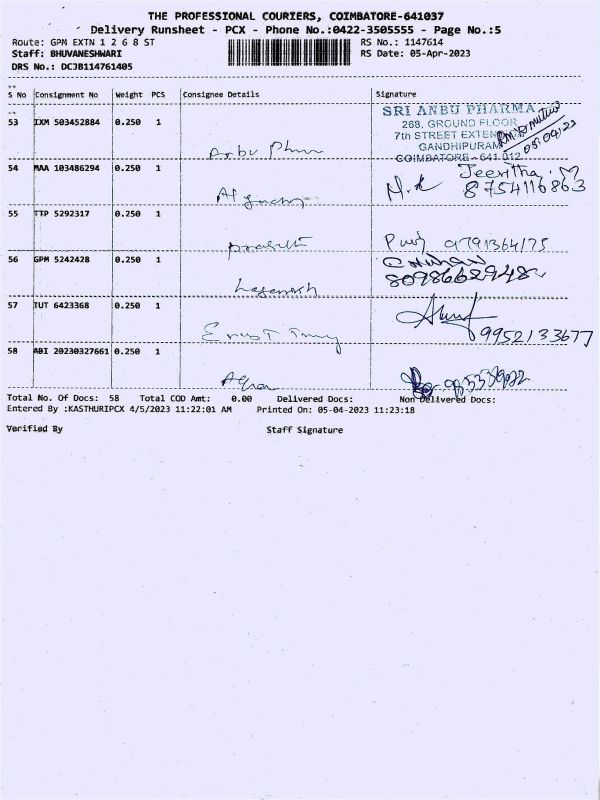 THE PROFESSIONAL COURIERS, COIMBATORE-641037
Delivery Runsheet - PCX - Phone No.:0422-3505555 - Page No.:5
Route: GPM EXTN 1 2 6 8 ST RS No.: 1147614
Staff: BHUVANESHWARI RS Date: 05-Apr-2023
DRS No.: DCJB114761405
S No Consignment No Weight PCS Consignee Details Signature
SRI ANBU PHARMA
53 IXM 503452884 0.250 1 268, GROUND FLOOR
7th STREET EXTEN
GANDHIPURAM
COIMBATORE - 641 012. 05.04.23
54 MAA 103486294 0.250 1 Jeevitha. M
8754116863
55 TTP 5292317 0.250 1
9791364175
56 GPM 5242428 0.250 1
57 IUT 6423368 0.250 1
Ernst 9952133677
58 ABI 20230327661 0.250 1
Total No. Of Docs: 58 Total COD Amt: 0.00 Delivered Docs: Non Delivered Docs:
Entered By :KASTHURIPCX 4/5/2023 11:22:01 AM Printed On: 05-04-2023 11:23:18
Verified By Staff Signature